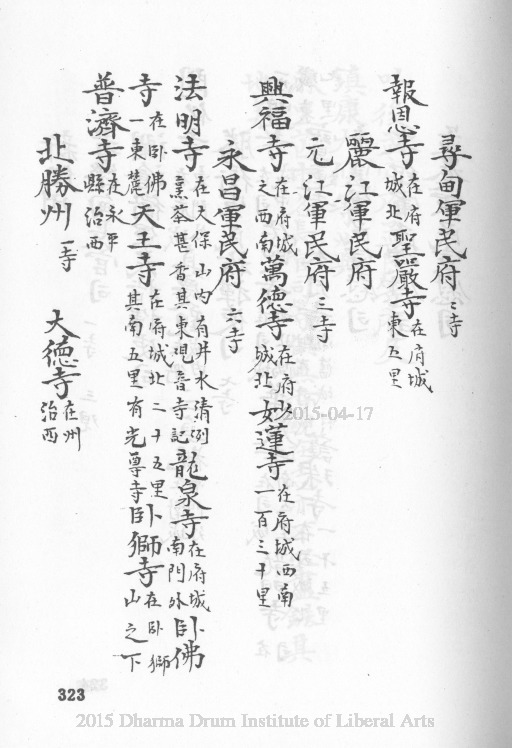 尋甸軍民府二寺
報恩寺在府城北聖嚴寺在府城東五里
麗江軍民府
元江軍民府三寺
興福寺在府城之西南萬德寺在府城北妙蓮寺在府城西南一百三十里
永昌軍民府六寺
法明寺在大保山内有井水清冽烹茶甚香其東覌音寺記龍泉寺在府城南門外卧佛
寺在卧佛一東麓天王寺在府城北二十五里其南五里有光尊寺卧獅寺在卧獅山之下
普濟寺在永平縣治西
北勝州一寺 大德寺在州治西
323
2015-04-17
2015 Dharma Drum Institute of Liberal Arts